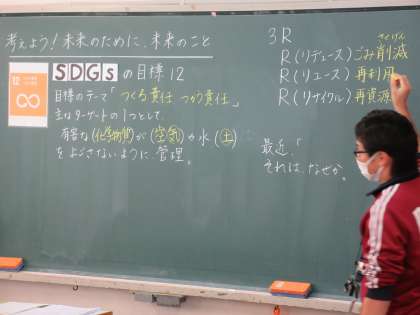 考えよう！未来のために、未来のこと
SDGsの目標12
目標のテーマ「つくる責任 つかう責任」
主なターゲットの1つとして
有害な(化学物質)が(空気)や水(土)
をよごさないように管理。
3R
さくげん
R(リデュース)ごみ削減
R(リユース)再利用
R(リサイクル)再資源
最近、「
それは、なぜか。
12